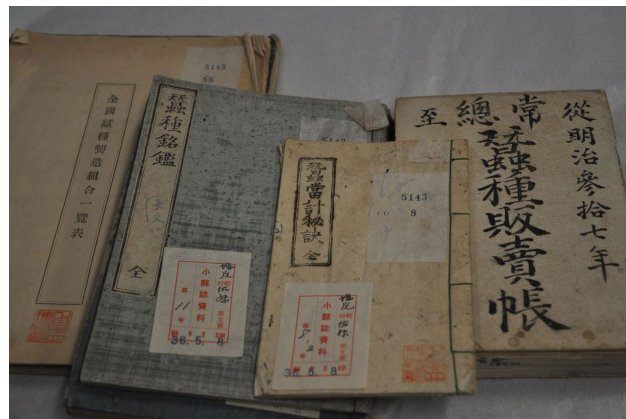 全國蠶種製造組合一覽表
5143
蚕種銘鑑
全
小縣誌資料
第 11 号
36.5.8
蚕當計秘訣
全
5143
8
小縣誌資料
36.5.8
從明治參拾七年
至
常總
蚕種販賣帳